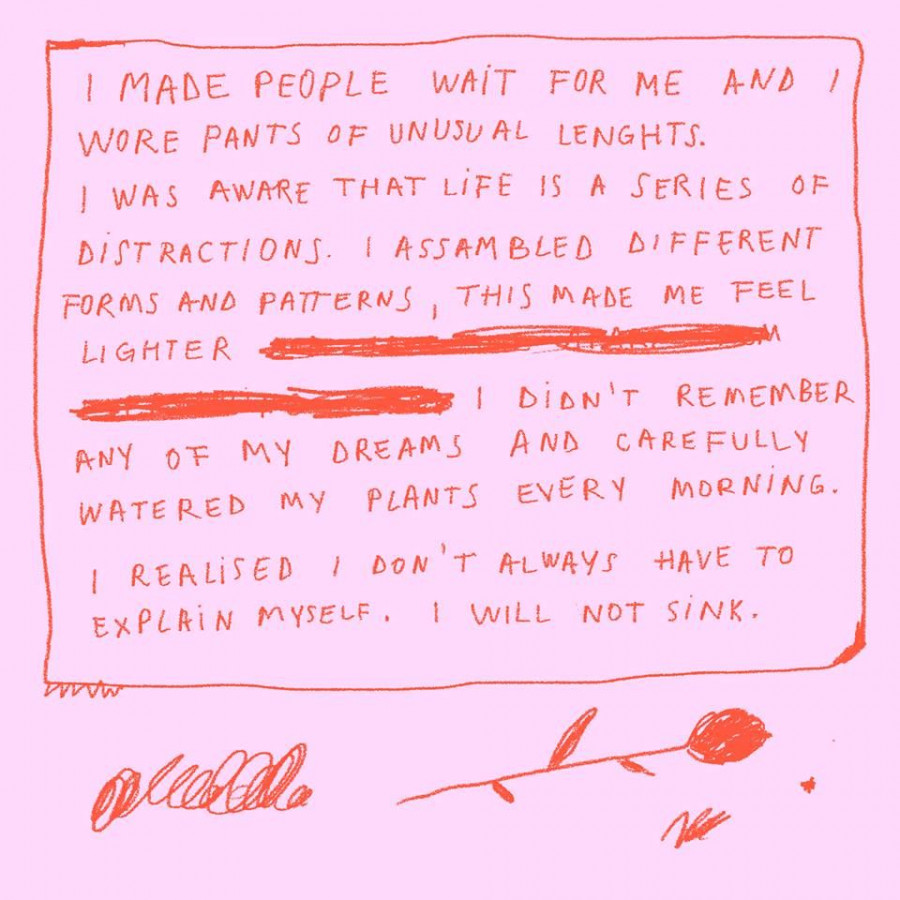 I MADE PEOPLE WAIT FOR ME AND I
WORE PANTS OF UNUSUAL LENGHTS.
I WAS AWARE THAT LIFE IS A SERIES OF
DISTRACTIONS. I ASSAMBLED DIFFERENT
FORMS AND PATTERNS, THIS MADE ME FEEL
LIGHTER
I DIDN'T REMEMBER
ANY OF MY DREAMS AND CAREFULLY
WATERED MY PLANTS EVERY MORNING.
I REALISED I DON'T ALWAYS HAVE TO
EXPLAIN MYSELF. I WILL NOT SINK.